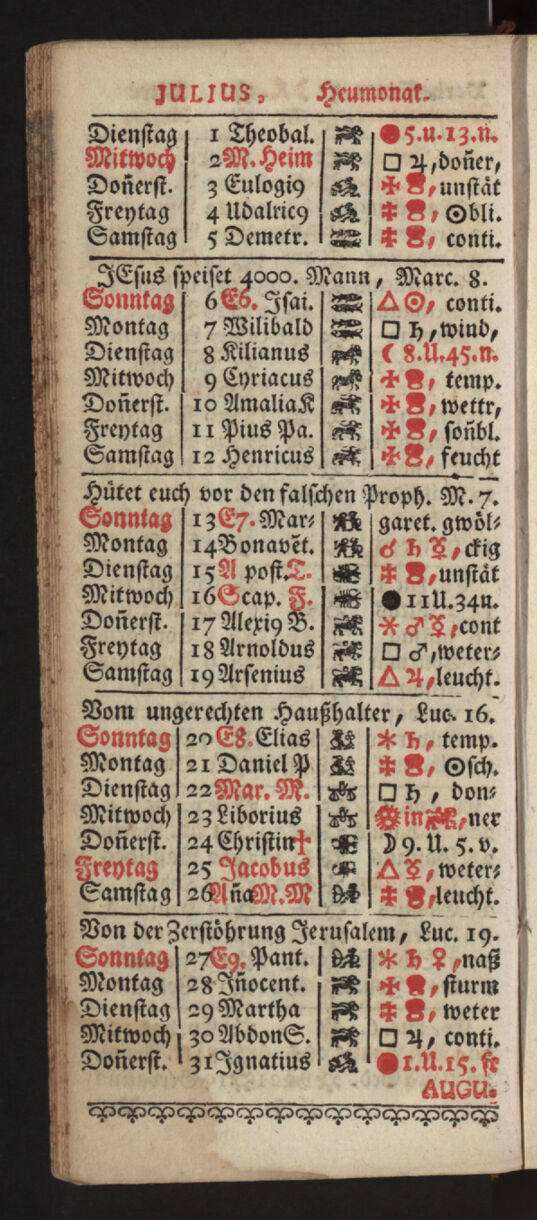 JULIUS, Heumonat.
Dienstag 1 Theobal. 5.u.13.n.
Mitwoch 2 M. Heim □ ♃, doñer,
Doñerst. 3 Eulogi9 unstät
Freytag 4 Udalric9 ☉bli.
Samstag 5 Demetr. conti.
JEsus speiset 4000. Mann, Marc. 8.
Sonntag 6 E6. Isai. △☉, conti.
Montag 7 Wilibald □ ♄, wind,
Dienstag 8 Kilianus ☾ 8.U.45.n.
Mitwoch 9 Cyriacus temp.
Doñerst. 10 AmaliaK wettr,
Freytag 11 Pius Pa. soñbl.
Samstag 12 Henricus feucht
Hütet euch vor den falschen Proph. M. 7.
Sonntag 13 E7. Mar⸗ garet. gwöl⸗
Montag 14 Bonavēt. ☌ ♄ ☿, ckig
Dienstag 15 A post. T. unstät
Mitwoch 16 Scap. F. ● 11U.34n.
Doñerst. 17 Alexi9 B. ⚹ ♂ ☿, cont
Freytag 18 Arnoldus □ ♂, weter⸗
Samstag 19 Arsenius △ ♃, leucht.
Vom ungerechten Haußhalter, Luc. 16.
Sonntag 20 E8. Elias ⚹ ♄, temp.
Montag 21 Daniel P ☉sch.
Dienstag 22 Mar. M. □ ♄, don⸗
Mitwoch 23 Liborius in ner
Doñerst. 24 Christin† ☽ 9. U. 5. v.
Freytag 25 Jacobus △ ☿, weter⸗
Samstag 26 Aña M.M leucht.
Von der Zerstöhrung Jerusalem, Luc. 19.
Sonntag 27 E9. Pant. ⚹ ♄ ♀, naß
Montag 28 Iñocent. sturm
Dienstag 29 Martha weter
Mitwoch 30 Abdon S. □ ♃, conti.
Doñerst. 31 Ignatius 1.U.15. fr
AUGU.